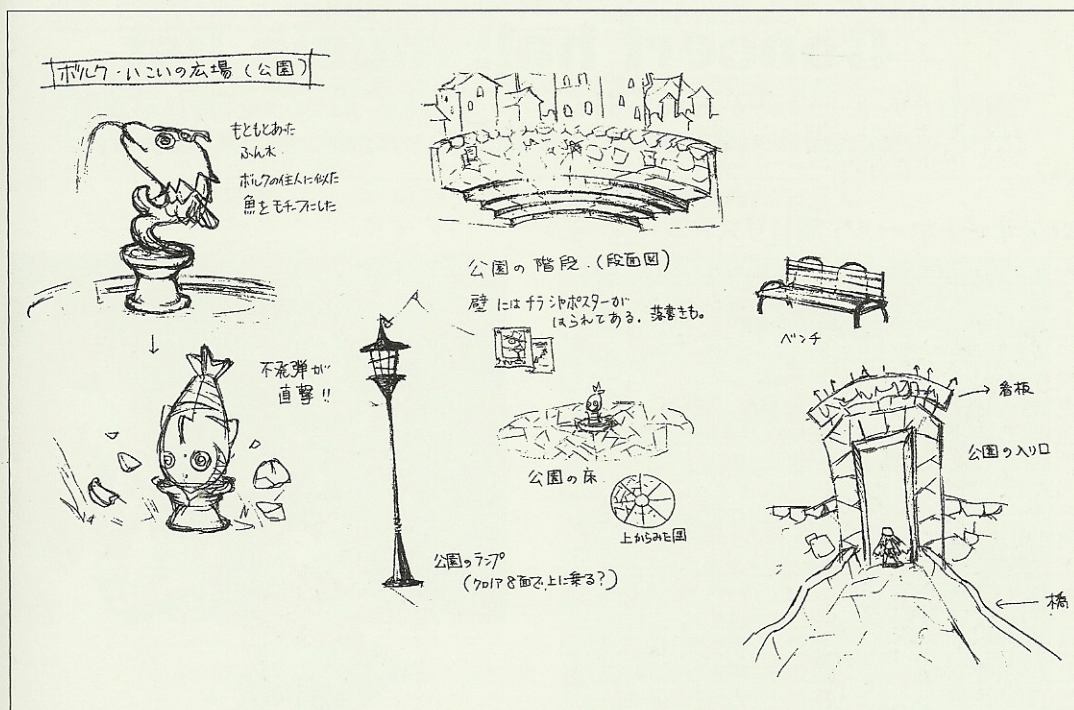 ボルク・いこいの広場(公園)
もともとあった
ふん水
ボルクの住人に似た
魚をモチーフにした
↓
不発弾が
直撃!!
公園の階段.(段面図)
壁にはチラシやポスターが
はられてある。落書きも。
ベンチ
公園の床
上からみた図
公園のランプ
(クロノア8面で、上に乗る?)
→看板
公園の入り口
←橋